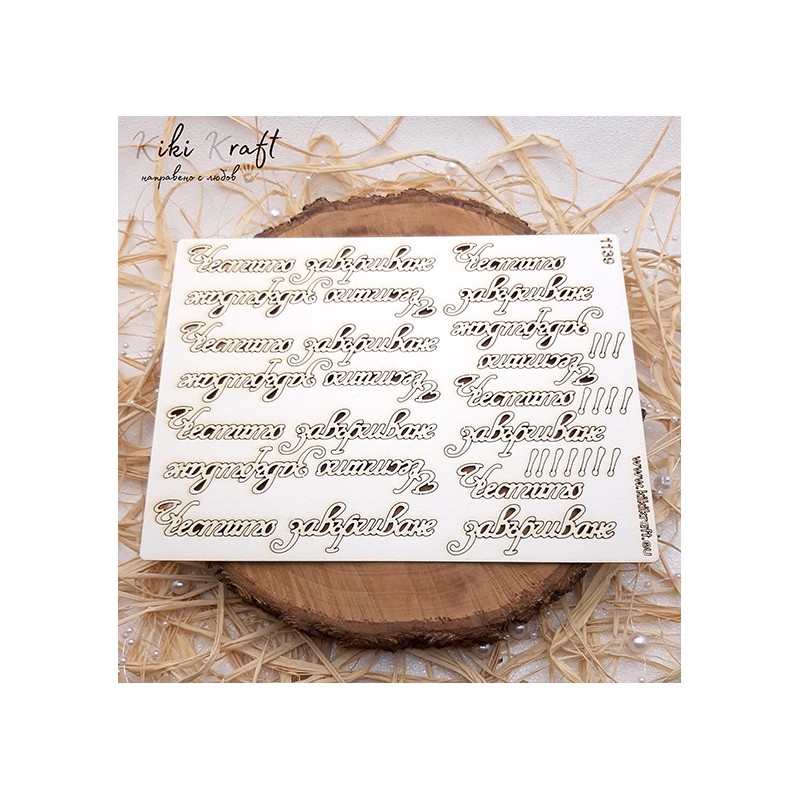 Kiki Kraft
направено с любов
1139
Честито завършване
Честито завършване
Честито завършване
Честито завършване
Честито завършване
Честито завършване
Честито завършване
Честито
завършване
Честито
завършване
!!!
Честито !!!!
завършване
!!!!!!!
Честито
завършване
www.kikikraft.eu